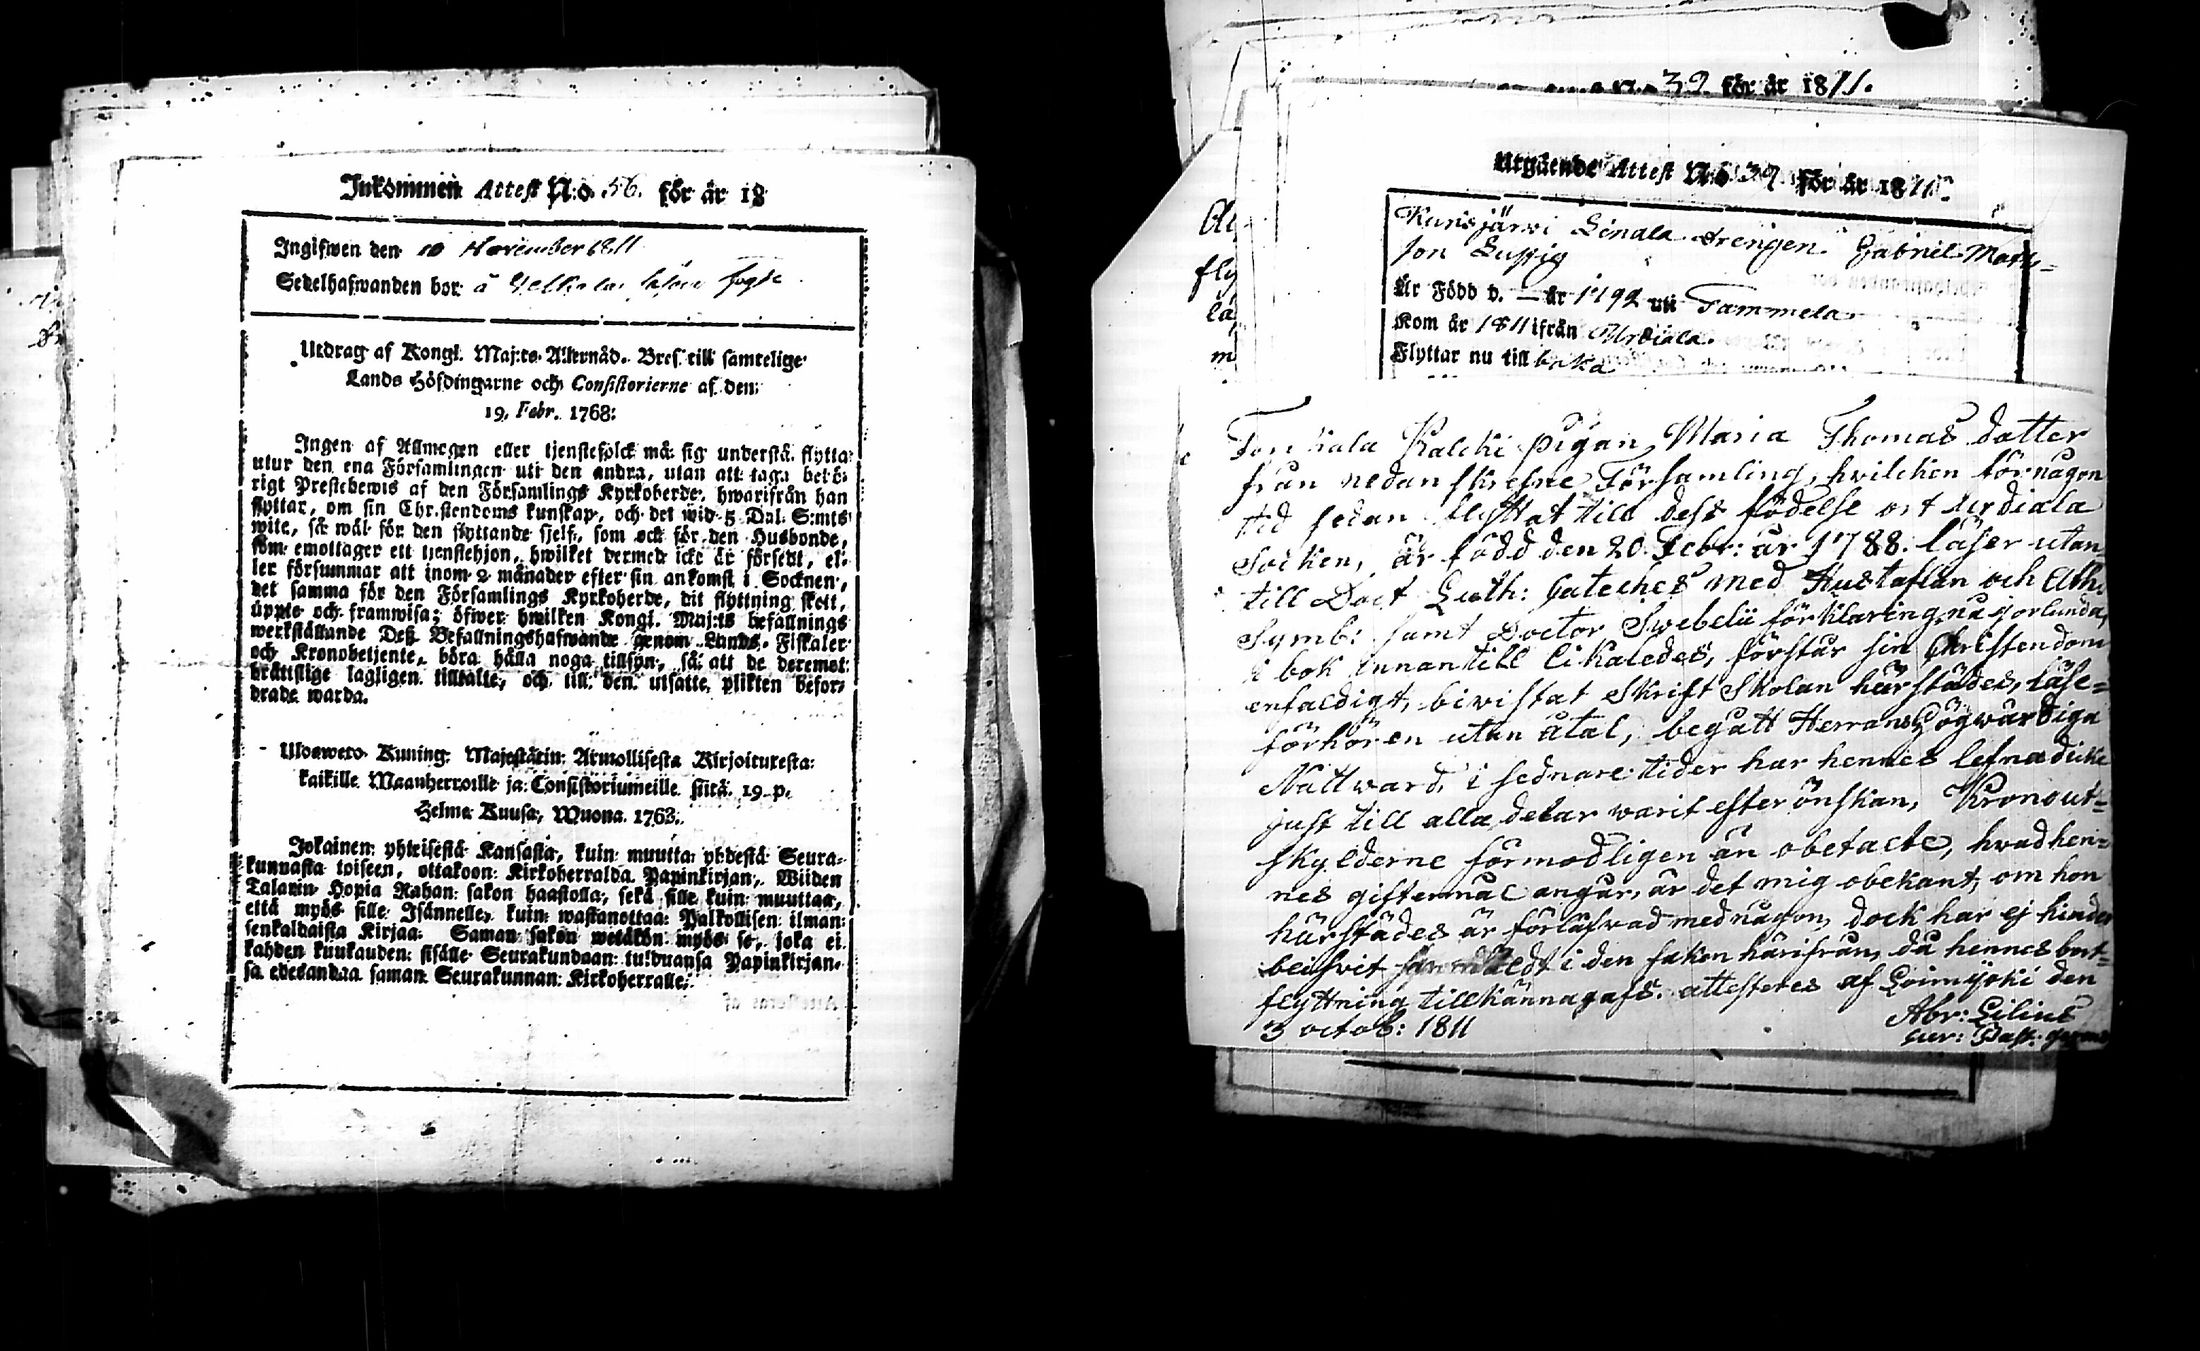 Inkommen Attest N:o 56. för år 18
Ingifwen den 10 November 1811
Sedelhafwanden bor å
Utdrag af Kongl. Maj:ts Allernåd. Bref till samtelige
Lands Höfdingarne och Consistorierne af den
19. Febr. 1768:
Ingen af Allmogen eller tjenstefolck må sig understå flytta
utur den ena Församlingen uti den andra, utan att taga behö-
rigt Prestebewis af den Församlings Kyrkoherde, hwarifrån han
flyttar, om sin Christendoms kunskap, och det wid 5 Dal. S:mts
wite, så wäl för den flyttande sjelf, som ock för den Husbonde,
som emottager ett tjenstehjon, hwilket dermed icke är försedt, el-
ler försummar att inom 2 månader efter sin ankomst i Socknen,
det samma för den Församlings Kyrkoherde, dit flyttning skett,
uppte och framwisa; öfwer hwilken Kongl. Maj:ts befallnings
werkställande Deß Befallningshafwande genom Lands-Fiskaler
och Kronobetjente, böra hålla noga tillsyn, så att de deremot
bråttslige lagligen tilltalte, och till den utsatte plikten befor-
drade warda.
Ulosweto Kuning. Majestätin Armollisesta Kirjoituresta
kaikille Maanherroille ja Consistoriumeille siitä 19 p.
Helme Kuusa, Wuona 1763.
Jokainen yhteisestä Kansasta, kuin muutta yhdestä Seura-
kunnasta toiseen, ottakoon Kirkoherralda Papinkirjan, Wiiden
Talarin Hopia Rahan sakon haastolla, sekä sille kuin muuttaa,
että myös sille Isännelle, kuin wastanottaa Palkollisen ilman
senkaldaista Kirjaa. Saman sakon wetäkön myös se, joka ei
kahden kuukauden sisälle Seurakundaan tulduansa Papinkirjan-
sa edesandaa saman Seurakunnan Kirkoherralle.
39 för år 1811.
Utgående Attest N:o 39 för år 1811.
Kuris järwi Sinala drengen Gabriel Matts-
son
Är Född d. — år 1792 uti Tammela
Kom år 1811 ifrån Urdiala.
Flyttar nu till baka
Kalcki pigan Maria Thomas dotter
från nedanskrefne Församling, hvilcken för någon
tid sedan flyttat till dess födelse ort Urdiala
Socken, är född den 20 Febr: år 1788. läser utan
till Doct Luth: Cateches med Hustaflan och Ath.
Symb: samt Doctor Swebelii förklaring någorlunda,
i bok innantill likaledes, förstår sin Christendom
enfaldigt, biwistat Skrift Skolan härstädes, läse-
förhören utan åtal, begått Herrans Högwärdiga
Nattward, i sednare tider har hennes lefnad icke
just till alla delar warit efter önskan, Kronout-
skylderne förmodligen än obetalte, hwad hen-
nes giftermål angår, är det mig obekant, om hon
härstädes är förlåfwad med någon, dock har ej hinder
blifvit i den saken härifrån, då hennes bort-
flyttning tillkännagafs. attesteres af Loimijoki den
3 octob: 1811
Abr: Lilius